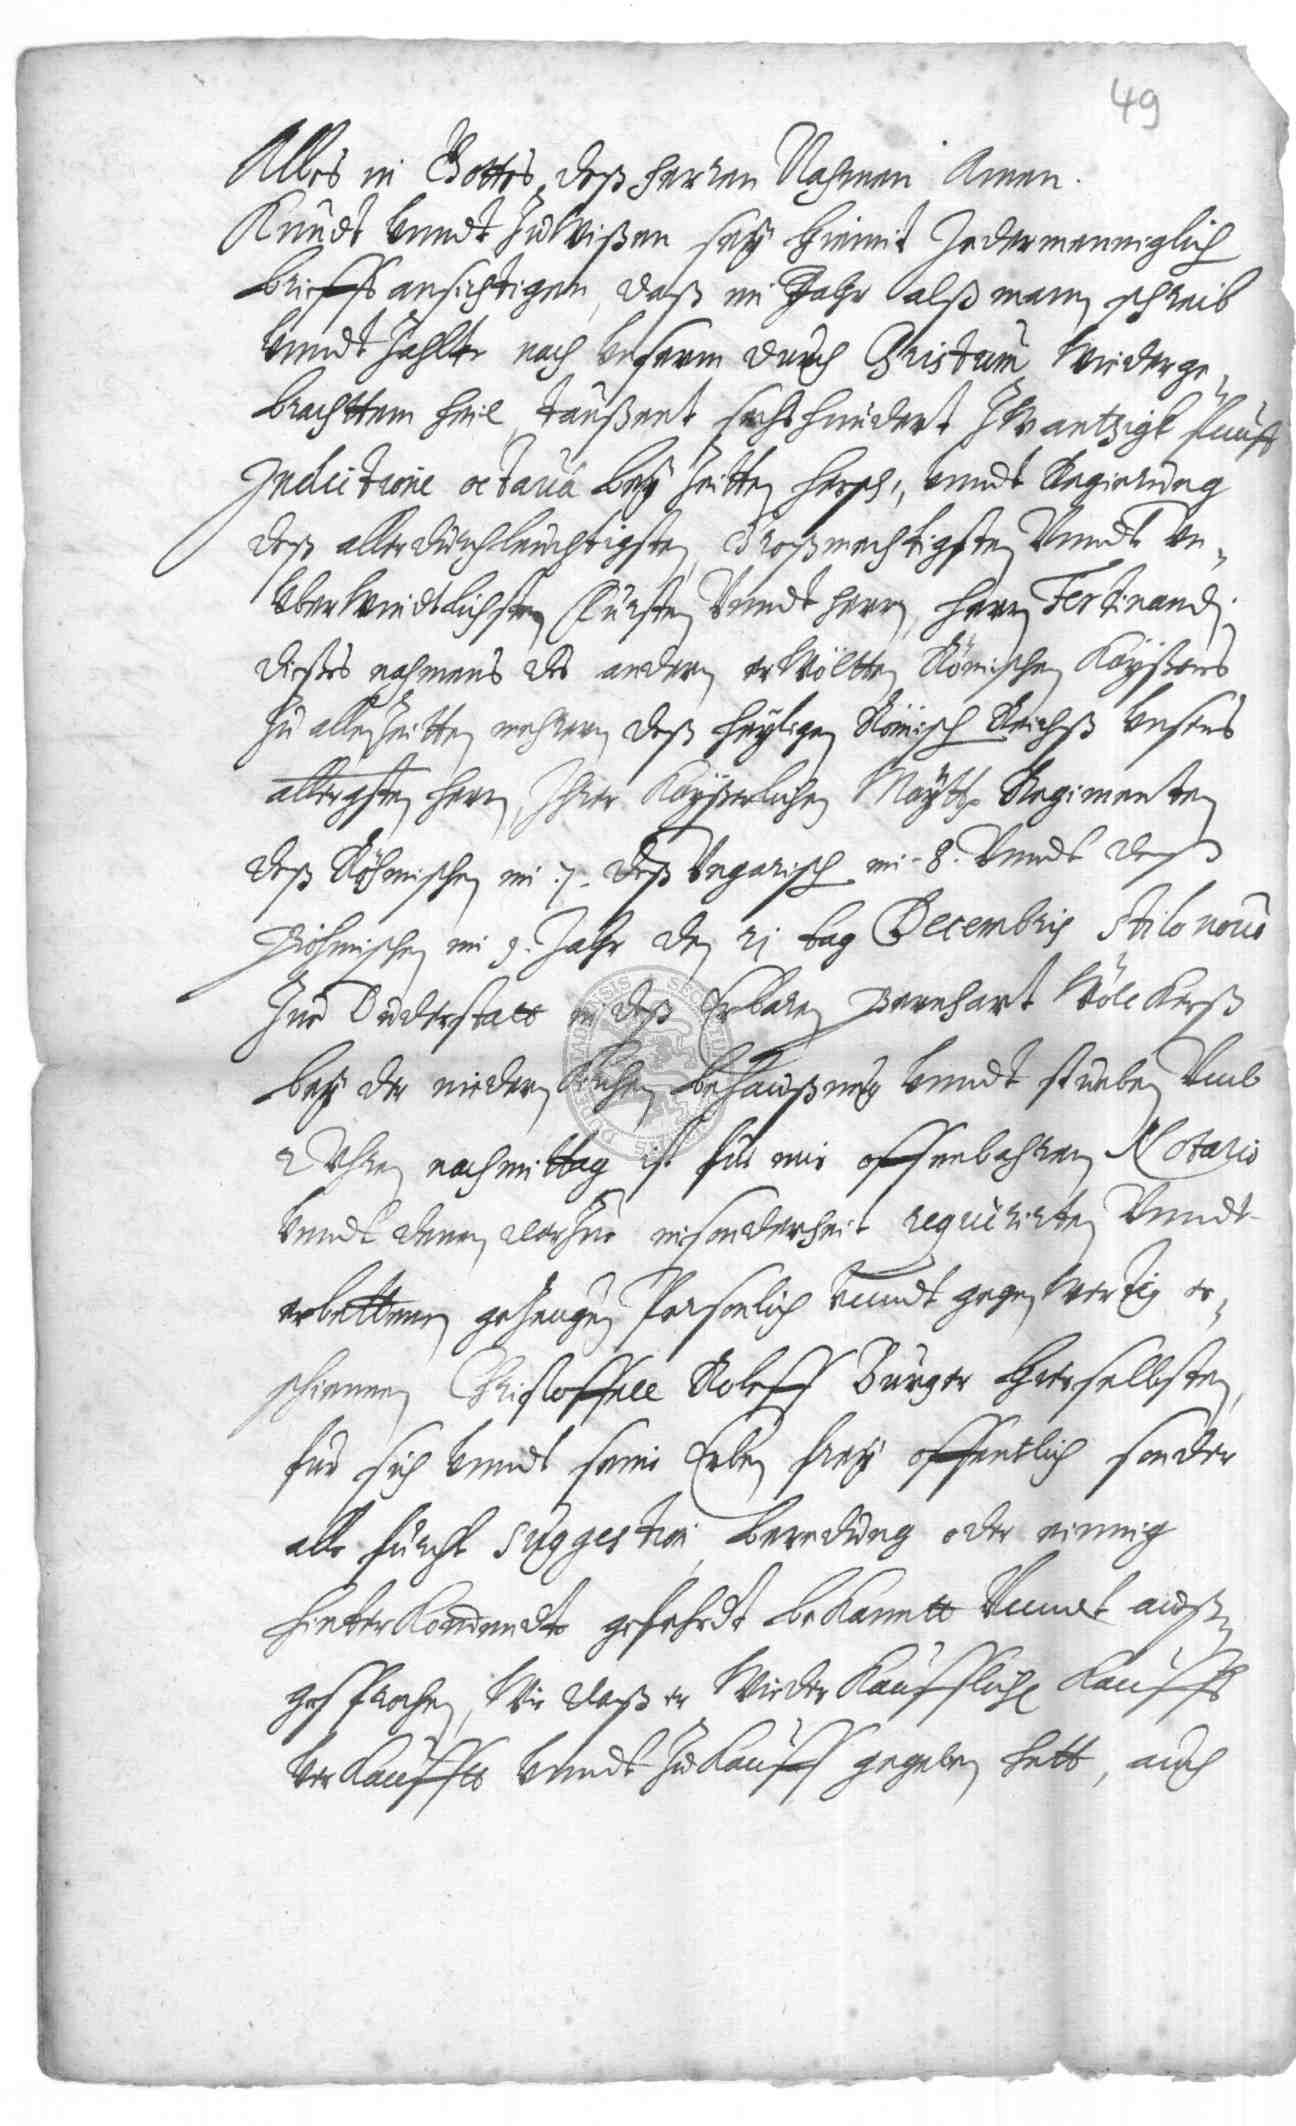 49
Alles in Gottes deß herren Nahmen Amen.
Kundt vnndt Zuwißen sey hiemit Jedermenniglich
brieffs ansichtigen, daß im Jahr alß mann schreib
vnndt Zahlte nach vnserm durch Christum wiederge-
brachttem heil, taußent sechshundert Zwantzigk funff
Indictione octaua bey Zeitten hersch:, vnndt Regierung
deß allerdurchleuchtigsten, Großmechtigsten Vnndt vn-
vberwindtlichsten Fursten Vnndt herrn, herrn Ferdinandi
dießes nahmens des andern erwöltten Römischen Kayßers
zu allen Zeitten mehrern deß heyligen Römisch Reichß vnsers
allergsten herrn, Ihrer Kayßerlichen Maytt. Regimenten
deß Römischen im .7. deß Vngarisch im 8. Vnndt deß
Böhmischen im 9. Jahr den 21 tag Decembris stilo nouo
Zue Duderstatt in deß Erbaren Bernhart Völckerß
bey der niedern Kirchen behaußung vnndt stueben Vmb
2 Vhren nachmittag ist fur mir offenbahren Notario
vnndt denen darzue insonderheit requirirten Vnndt
erbettenen gezeugen Personlich vnndt gegenwertig er-
schiennen Christoffell Roleff Burger hierselbsten,
fur sich vnndt seine Erben frey offentlich sonder
alle furcht suggestion, beredung oder einnig
hinterkommendte gefehrdt bekanntt Vnndt auß-
gesprochen, Wie daß er Wiederkaufflich Kauffs
verkauffts vnndt Zukauff gegeben hett, auch